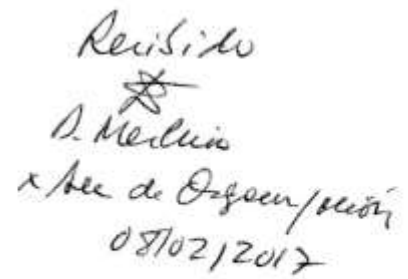 Recibido
D. Merchin
x Sec de Organización
08/02/2017